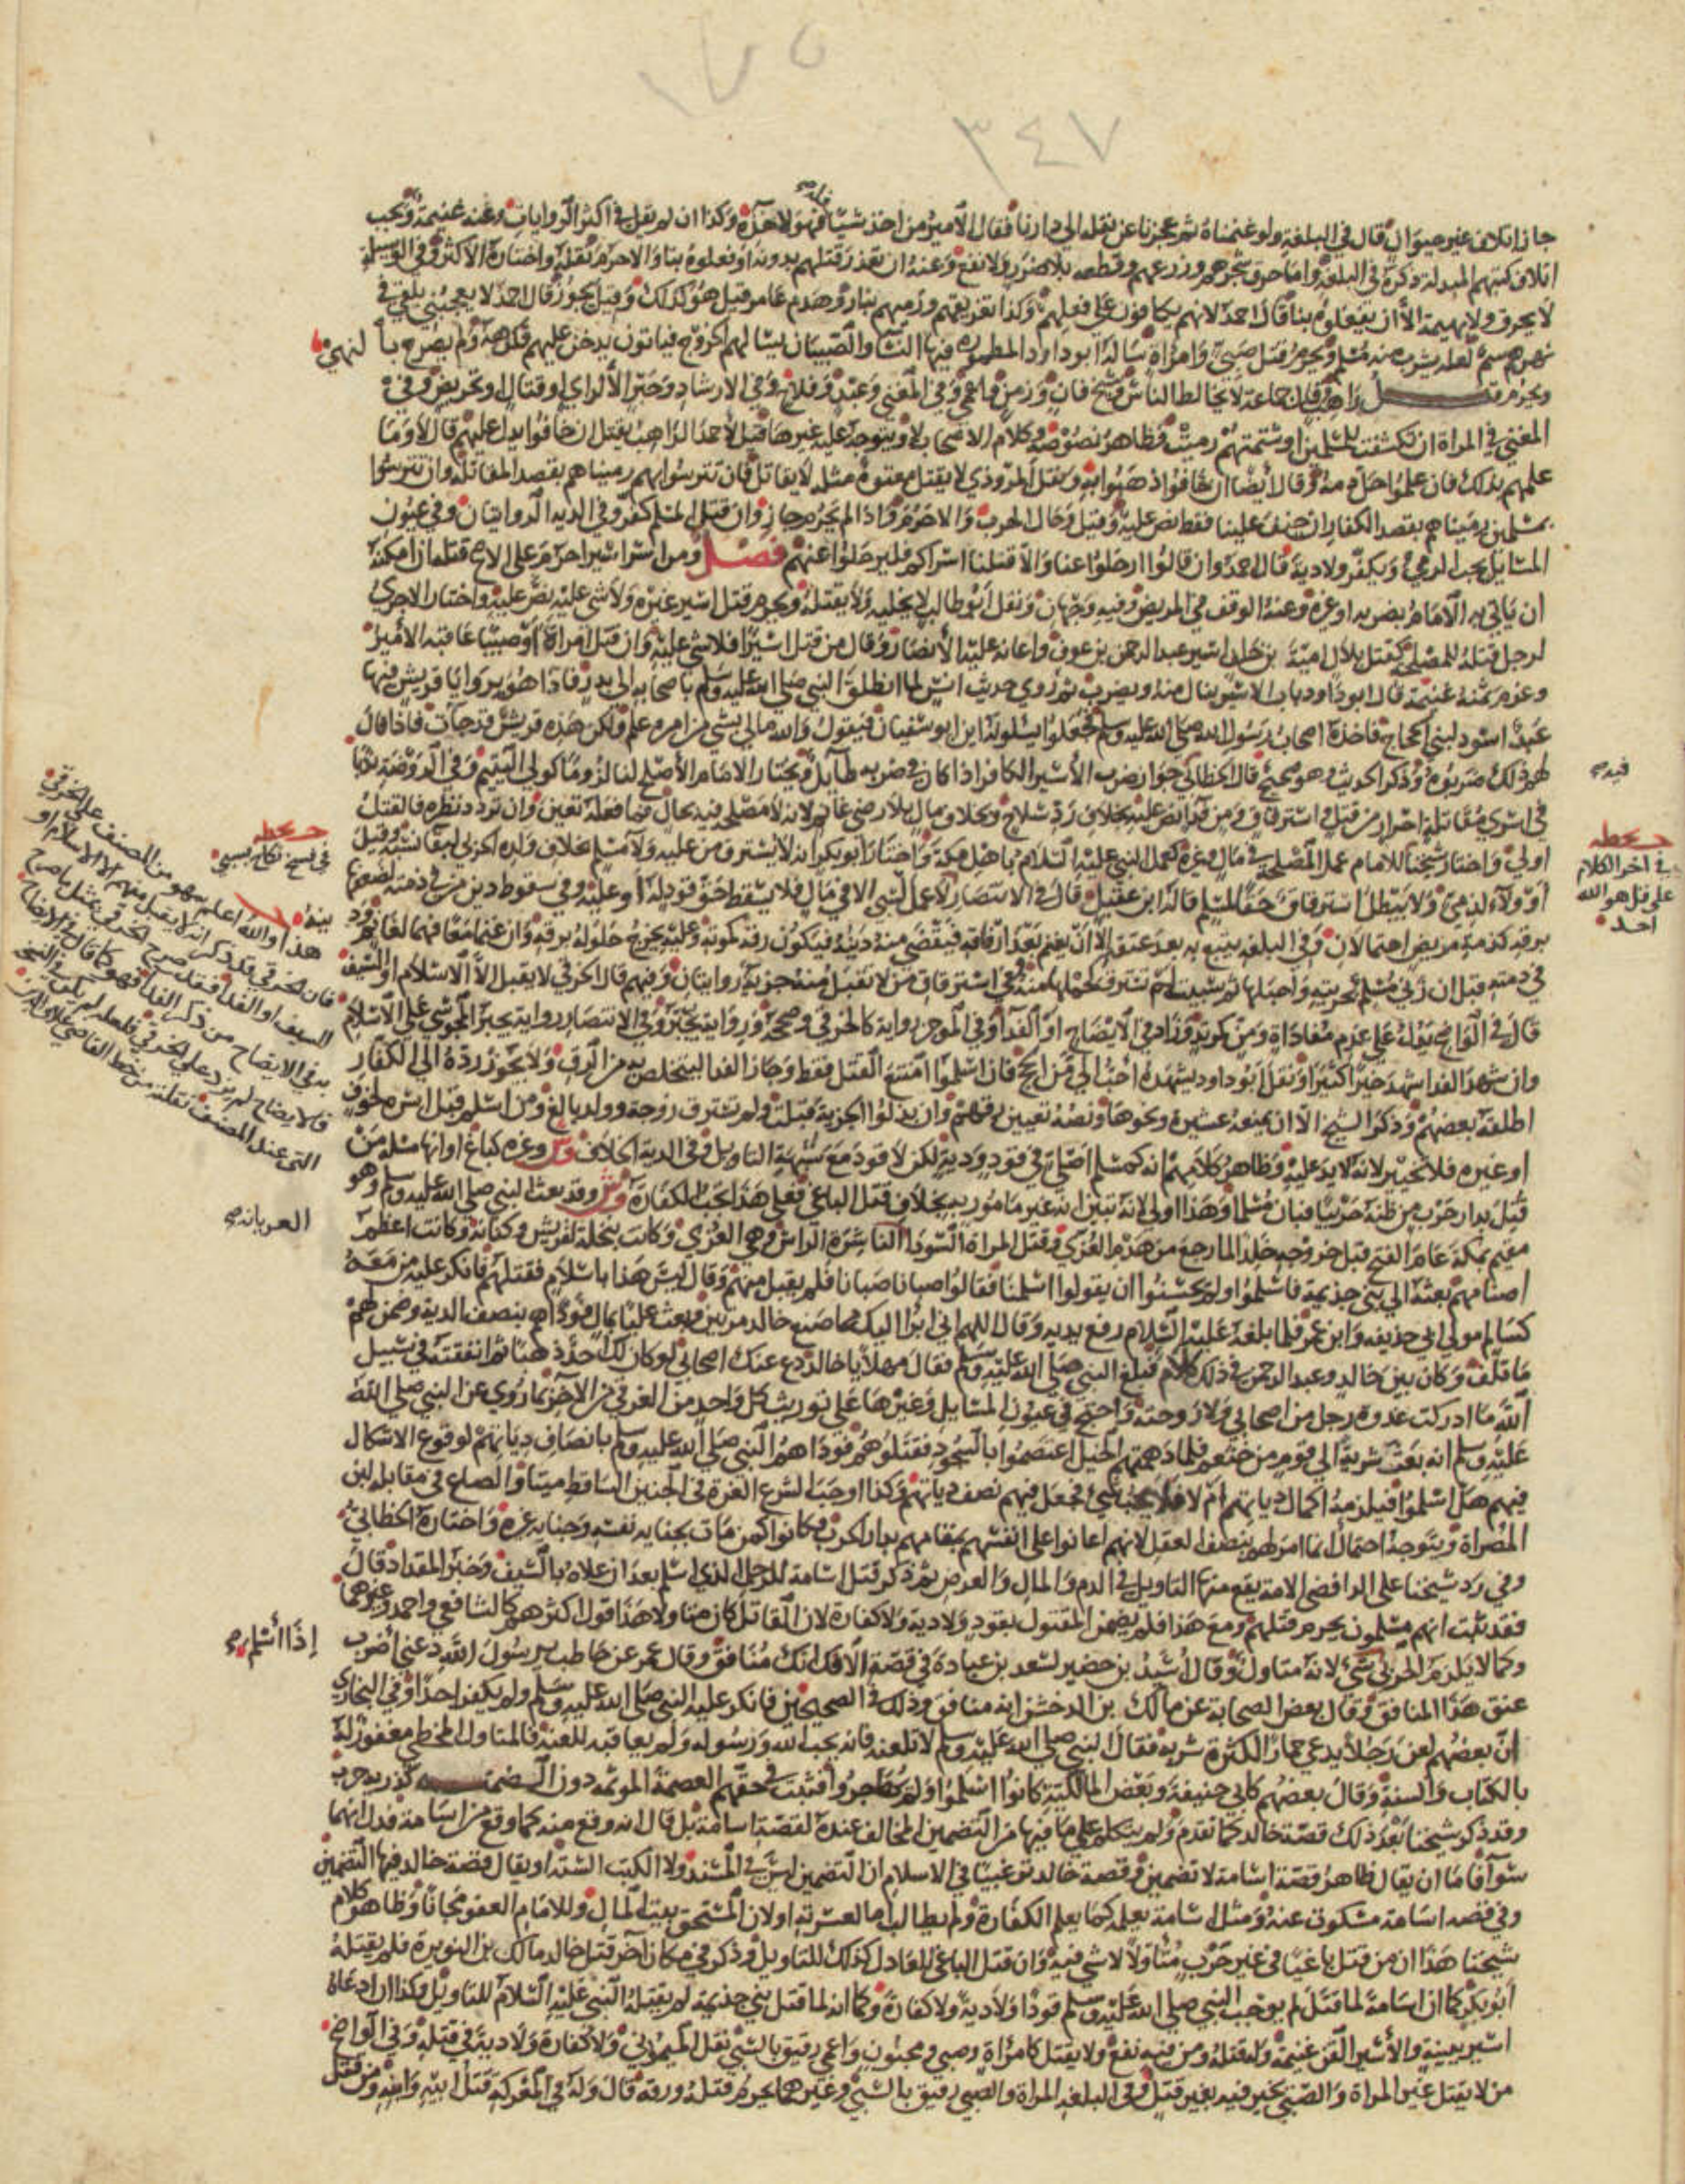 ١٧٥
٣٤٧
جاز اتلاف غير حيوان قال في البلغة ولو غنمناه ثم عجزنا عن نقله الى دارنا فقال الامير من اخذ شيئا فهو له فلاخذه وكذا ان لم يقل في اكثر الروايات وعنه غنيمة ويجب
اتلاف كتبهم المبدلة ذكره في البلغة واما حرق شجرهم وزرعهم وقطعه بلا ضرر ولا نفع وعنه ان تعذر قتلهم بدونه او فعلوه بنا والا حرم نقله واختاره الاكثر وفي الوسيلة
لا يحرق ولا بهيمة الا ان يفعلوه بنا قال احمد لانهم يكافون على فعلهم وكذا تغريقهم ورميهم بنار وهدم عامر قيل هو كذلك وقيل يجوز قال احمد لا يعجبني يلقى في
نهرهم سم لعله يشرب منه مسلم ويحرم قتل صبي وامراة سأله ابو داود المطمورة فيها النساء والصبيان يسالهم الخروج فيابون يدخن عليهم فكرهه ولم يصرح بالنهي
ويحرم قتل راهب قال جماعة لا يخالط الناس وشيخ فان وزمن واعمى وفي المغني وعبد وفلاح وفي الارشاد وحبر الا لراي او قتال او تحريض وفي
المغني في المراة ان تكشفت للمسلمين او شتمتهم رميت وظاهر نصوصه وكلام الاصحاب لا ويتوجه عليه غيرها قيل لاحمد الراهب يقتل ان خافوا يدل عليهم قال لا وما
علمهم بذلك فان علموا حل دمه وقال ايضا ان خافوا ذهبوا به ونقل المروذي لا يقتل معتوه مثله لا يقاتل فان تترسوا بهم رميناهم بقصد المقاتلة وان تترسوا
بمسلمين رميناهم بقصد الكفار ان خيف علينا فقط نص عليه وقيل وحال الحرب والا حرم واذا لم يحرم جاز وان قتل المسلم كفر وفي الدية الروايتان وفي عيون
المسايل يجب الرمي ويكفر ولا دية قال احمد وان قالوا ارحلوا عنا والا قتلنا اسراكم فليرحلوا عنهم فصل ومن اسر اسيرا حرم على الاصح قتله ان امكنه
ان ياتي به الامام بضربه او غيره وعنه الوقف في المريض وفيه وجهان ونقل ابو طالب لا يخليه ولا يقتله ويحرم قتل اسير غيره ولا شي عليه نص عليه واختار الاجري
لرجل قتله للمصلحة كقتل بلال امية بن خلف اسير عبد الرحمن بن عوف واعانه عليه الانصار وقال من قتل اسيرا فلا شي عليه وان قتل امراة او صبيا عاقبه الامير
وغرم ثمنه غنيمة قال ابو داود باب الاسير ينال منه ويضرب ثم روى حديث انس لما انطلق النبي صلى الله عليه وسلم باصحابه الى بدر فاذا هو بروايا قريش فيها
عبد اسود لبني الحجاج فاخذه اصحاب رسول الله صلى الله عليه وسلم فجعلوا يسئلونه اين ابو سفيان فيقول والله مالي بشي من امره علم ولكن هذه قريش قد جات فاذا قال
لهم ذلك ضربوه وذكر الحديث وهو صحيح قال الخطابي جواز ضرب الاسير الكافر اذا كان في ضربه طايل ويختار الامام الاصلح لنا لزوما كولي اليتيم وفي الروضة ندبا
في اسرى مقاتلة احرار من قتل واسترقاق ومن فدا نص عليه بخلاف رد سلاح وبخلاف مال بلا رضى غانم لانه لا مصلحة فيه بحال فما فعله تعين وان تردد نظره فالقتل
اولى واختار شيخنا للامام عمل المصلحة في مال وغيره كعمل النبي عليه السلام باهل مكة واختار ابو بكر انه لا يسترق من عليه ولا لمسلم بخلاف ولده الحربي لبقا نسبه وقيل
او ولاء لذمي ولا يبطل استرقاق حقا لمسلم قاله ابن عقيل قال في الانتصار لا عمل لسبي الا في مال فلا يسقط حق قود له او عليه وفي سقوط دين من في ذمته لضعفها
برقه كذمة مريض احتمالان وفي البلغة يتبع به بعد عتقه الا ان يغنم بعد ارقاقه فيقضي منه دينه فيكون رقه كموته وعليه يخرج حلوله برقه وان غنما معا فهما لغانم ودينه
في ذمته قيل ان زنى مسلم بحربية واحبلها ثم سبيت لم تسترق لحملها منه وفي استرقاق من لا تقبل منه جزية روايتان وفيهم قال الخرقي لا يقبل الا الاسلام او السيف
قال في الواضح يدل على عدم مفاداة ومن كونه وزاد في الايضاح او الفدا وفي الموجز رواية كالخرقي وصححه ورواية يخير وفي الانتصار رواية يجبر المجوسي على الاسلام
وان شهد الفدا شهد خيرا كثيرا ونقل ابو داود يشهده احب الي من الحج فان اسلموا امتنع القتل فقط وجاز الفدا ليتخلص به من الرق ولا يجوز رده الى الكفار
اطلقه بعضهم وذكر الشيخ الا ان يمنعه عشيرة ونحوها ونصه تعيين رقهم وان بذلوا الجزية قبلت ولم تسترق زوجة وولد بالغ ومن اسلم قبل اسره لخوف
او غيره فلا تخيير لانه لا يد عليه وظاهر كلامهم انه كمسلم اصلي في قود ودية لكن لا قود مع شبهة التاويل وفي الدية الخلاف وش وغره كباغ او انها مسلة من
قتل بدار حرب من ظنه حربيا فبان مسلما وهذا اولى لانه تبين انه غير مامور به بخلاف قتل الباغي فعلى هذا تجب الكفارة وش وقد بعث النبي صلى الله عليه وسلم وهو
مقيم بمكة عام الفتح قبل خروجه خالدا لما رجع من هدم العزى وقتل المراة السودا الناشرة الراس وهي العزى وكانت بنخلة لقريش وكنانة وكانت اعظم
اصنامهم بعثه الى بني جذيمة فاسلموا ولم يحسنوا ان يقولوا اسلمنا فقالوا صبانا صبانا فلم يقبل منهم وقال ليس هذا باسلام فقتلهم فانكر عليه من معه
كسالم مولى ابي حذيفة وابن عمر فلما بلغه عليه السلام رفع يديه وقال اللهم اني ابرا اليك مما صنع خالد مرتين وبعث عليا بمال فوداهم بنصف الدية وضمن لهم
ما تلف وكان بين خالد وعبد الرحمن في ذلك كلام فبلغ النبي صلى الله عليه وسلم فقال مهلا يا خالد دع عنك اصحابي لو كان لك احد ذهبا ثم انفقته في سبيل
الله ما ادركت غدوة رجل من اصحابي ولا روحته واحتج في عيون المسايل وغيرها على توريث كل واحد من الغرقى من الاخر بما روي عن النبي صلى الله
عليه وسلم انه بعث سرية الى قوم من خثعم فلما دهمتهم الخيل اعتصموا بالسجود فقتلوهم فوداهم النبي صلى الله عليه وسلم بانصاف دياتهم لوقوع الاشكال
فيهم هل اسلموا فيلزمه اكمال دياتهم ام لا فلا يجب شي فجعل فيهم نصف دياتهم وكذا اوجب الشرع الغرة في الجنين الساقط ميتا والصاع في مقابلة لبن
المصراة ويتوجه احتمال انما امر لهم بنصف العقل لانهم اعانوا على انفسهم بمقامهم بدار الحرب وكانوا كمن مات بجناية نفسه وجناية غيره واختاره الخطابي
وفي رد شيخنا على الرافضي الامة يقع منها التاويل في الدم والمال والعرض ثم ذكر قتل اسامة للرجل الذي اسلم بعد ان علاه بالسيف وخبر المقداد قال
فقد ثبت انهم مسلمون يحرم قتلهم ومع هذا فلم يضمن المقتول بقود ولا دية ولا كفارة لان القاتل كان متاولا هذا قول اكثرهم كالشافعي واحمد وغيرهما
وكما لا يلزم الحربي شي لانه متاول وقال اسيد بن حضير لسعد بن عبادة في قصة الافك انك منافق وقال عمر عن حاطب يرسول الله دعني اضرب
عنق هذا المنافق وقال بعض الصحابة عن مالك بن الدخشن انه منافق وذلك في الصحيحين فانكر عليه النبي صلى الله عليه وسلم ولم يكفر احدا وفي البخاري
ان بعضهم لعن رجلا يدعى حمارا لكثرة شربه فقال النبي صلى الله عليه وسلم لا تلعنه فانه يحب الله ورسوله ولم يعاقبه للعنه فالمتاول المخطي مغفور له
بالكتاب والسنة وقال بعضهم كابي حنيفة وبعض المالكية كانوا اسلموا ولم يهاجروا فثبت في حقهم العصمة الموثمة دون المضمنة كذرية حرب
وقد ذكر شيخنا بعد ذلك قصة خالد كما تقدم ولم يتكلم على ما فيها من التضمين المخالف عنده لقصة اسامة بل قال انه وقع منه كما وقع من اسامة فدل انهما
سوآ فاما ان يقال ظاهر قصة اسامة لا تضمين وقصة خالد ترغيبا في الاسلام ان التضمين ليس في المسند ولا الكتب الستة او يقال قصة خالد فيها التضمين
وفي قصة اسامة مسكوت عنه ومثل اسامة يعلمه كما يعلم الكفارة ولم يطالب اما لعسرته او لان المستحق بيت المال وللامام العفو مجانا وظاهر كلام
شيخنا هذا ان من قتل باغيا في غير حرب متاولا لا شي فيه وان قتل الباغي للعادل كذلك للتاويل وذكر في مكان آخر قتل خالد مالك بن النويرة فلم يقتله
ابو بكر كما ان اسامة لما قتل لم يوجب النبي صلى الله عليه وسلم قودا ولا دية ولا كفارة وكما انه لما قتل بني جذيمة لم يقتله النبي عليه السلام للتاويل وكذا ان ادعاه
اسير ببينة والاسير القن غنيمة وله قتله ومن فيه نفع ولا يقتل كامراة وصبي ومجنون واعمى رقيق بالسبي نقل الميموني ولا كفارة ولا دية في قتله وفي الواضح
من لا يقتل غير المراة والصبي يخير فيه بغير قتل وفي البلغة المراة والصبي رقيق بالسبي وغيرهما يحرم قتله ورقه قال وله في المعركة قتل ابيه وابنه ومن قتل
فيه صح
بخطه
في آخر الكلام
على قل هو الله
احد
بخطه
بينة
هذا والله اعلم سهو من المصنف على الخرقي
العربانة صح
إذا أسلم صح